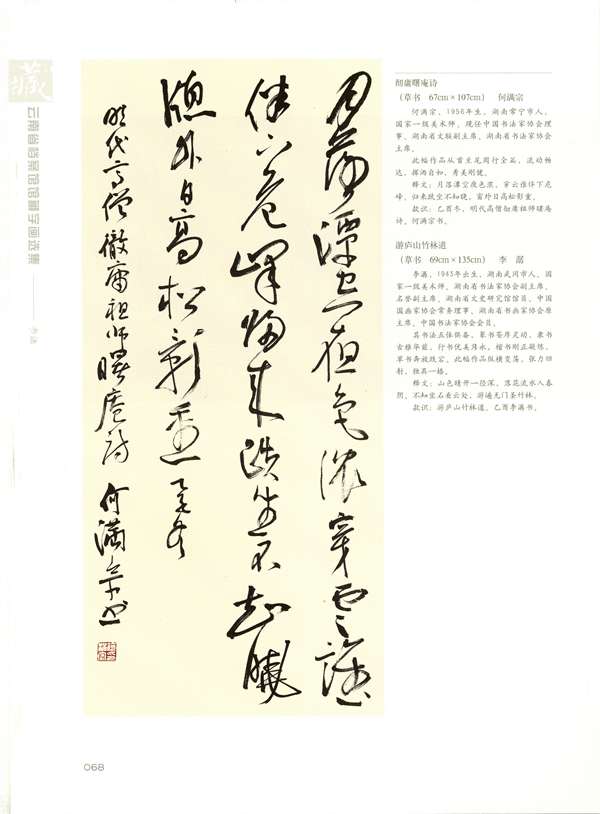 藏
云南省档案馆馆藏字画选集
书法
月落潭空夜色濃穿雲誰
伴下危峰歸来趺坐不知曉
牕外日高松影重 乙酉冬
明代高僧徹庸祖師曙庵詩 何滿宗書
彻庸曙庵诗
（草书 67cm×107cm） 何满宗
何满宗，1956年生，湖南常宁市人，
国家一级美术师。现任中国书法家协会理
事、湖南省文联副主席、湖南省书法家协会
主席。
此幅作品从首至尾周行全篇，流动畅
达，挥洒自如，秀美刚健。
释文：月落潭空夜色浓，穿云谁伴下危
峰。归来趺坐不知晓，窗外日高松影重。
款识：乙酉冬，明代高僧彻庸祖师曙庵
诗。何满宗书。
游庐山竹林道
（草书 69cm×135cm） 李 潺
李潺，1943年出生，湖南武冈市人。国
家一级美术师。湖南省书法家协会副主席、
名誉副主席、湖南省文史研究馆馆员，中国
国画家协会常务理事、湖南省书画家协会原
主席、中国书法家协会会员。
其书法五体俱备，篆书苍厚灵动，隶书
古雅华兹，行书优美隽永，楷书刚正凝炼，
草书奔放跌宕。此幅作品纵横变荡，张力四
射，独具一格。
释文：山色晴开一径深，落花流水入春
阴。不知坐石看云处，游遍无门圣竹林。
款识：游庐山竹林道。乙酉李潺书。
068